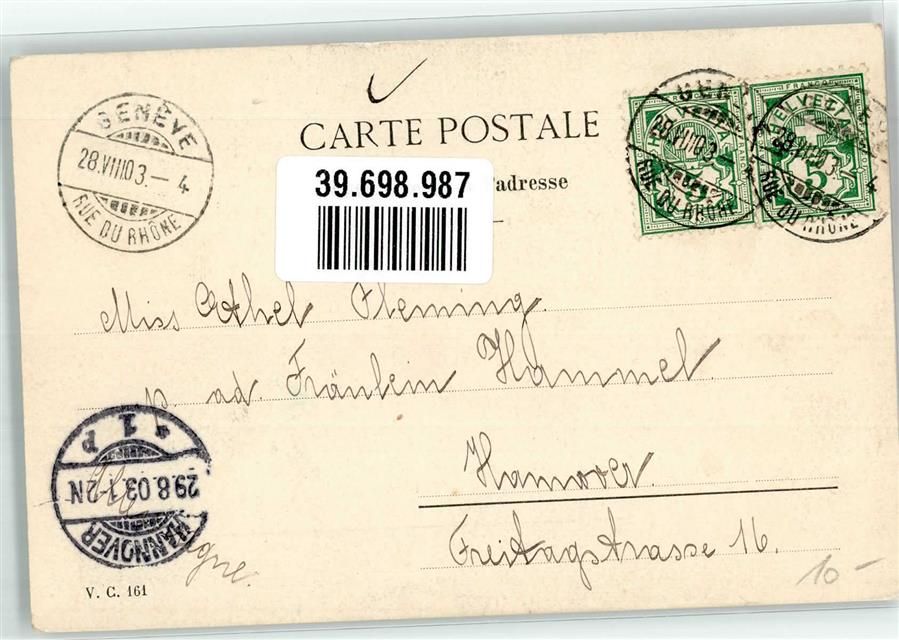 GENÈVE
28.VIII.03.–4
RUE DU RHÔNE
CARTE POSTALE
39.698.987
l'adresse
HELVETIA
FRANCO
5
28.VIII.03.–4
RUE DU RHÔNE
28.VIII.03.–4
RUE DU RHÔNE
Miss Ethel Fleming.
p. ad. Fräulein Hammel.
Hanover.
Freitagstrasse 16.
HANNOVER
29.8.03.1-2N
* 1 p
V. C. 161
10-